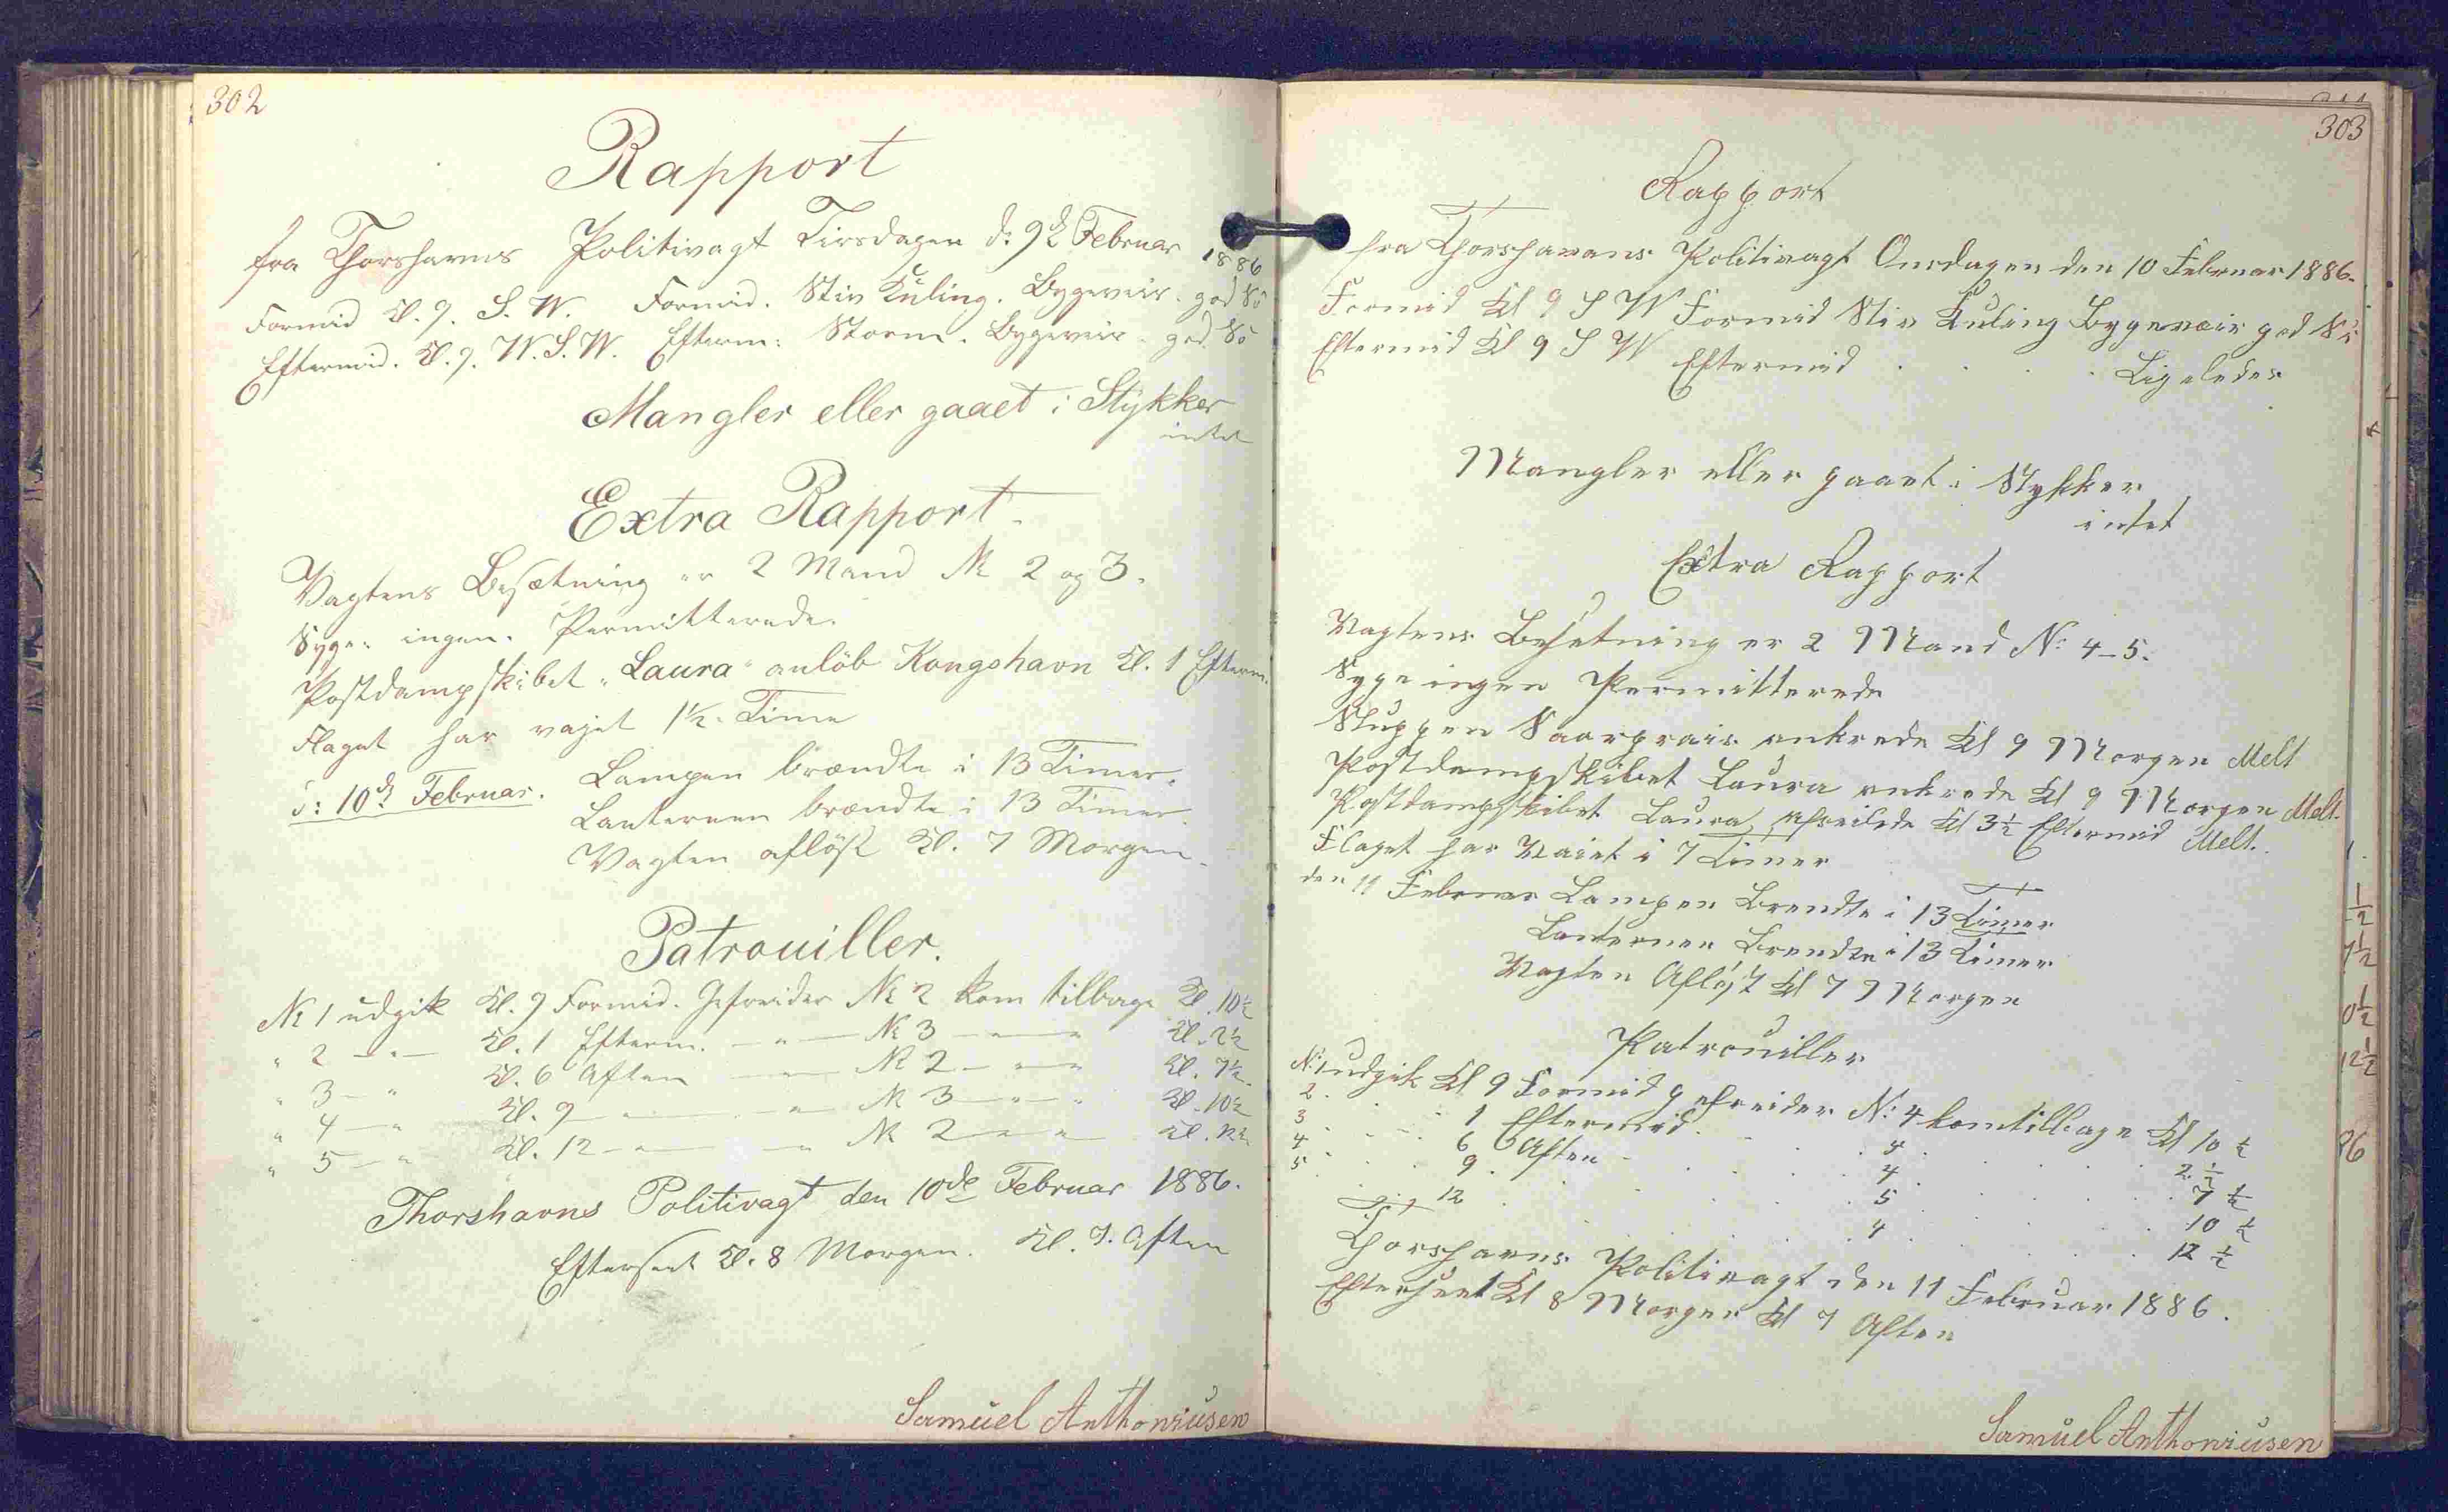 302
Rapport
fra Thorshavns Politivagt Tirsdagen d: 9de Februar 1886
Formid Kl. 9. S. W. Formid. Stiv Kuling. Bygeveir. god Sö
Eftermid. Kl. 9. W. S. W. Efterm: Storm. Bygeveir. god. Sö
Mangler eller gaaet i Stykker
intet
Extra Rapport.
Vagtens Besætning er 2 Mand No 2 og 3.
Syge: ingen. Permitterede.
Postdampskibet "Laura" anlöb Kongshavn Kl. 1 Efterm.
Flaget har vajet 1½ Time
d: 10de Februar. Lampen brændte i 13 Timer.
Lanternen brændte i 13 Timer.
Vagten aflöst Kl. 7 Morgen.
Patrouiller.
No 1 udgik Kl. 9 Formid. Gefreider No 2 kom tilbage Kl. 10½
" 2 – " – Kl. 1 Efterm. – " – No 3 – " – Kl. 2½
" 3 – " Kl. 6 Aften – " – No 2 – " – Kl. 7½.
" 4 – " Kl. 9 – " – No 3 – " – Kl. 10½
" 5 – " – Kl. 12 – " – No 2 – " – Kl. 12½
Thorshavns Politivagt den 10de Februar 1886.
Efterseet Kl. 8 Morgen. Kl. 7. Aften
Samuel Anthoniusen
303
Rapport
fra Thorshavns Politivagt Onsdagen den 10 Februar 1886.
Formid Kl 9 S W Formid Stiv Kuling Bygeveir god Sö
Eftermid Kl 9 S W Eftermid . . . . Ligeledes
Mangler eller gaaet i Stykker
intet
Extra Rapport
Vagtens Besetning er 2 Mand No: 4-5.
Syge ingen Permitterede
Sluppen ankrede Kl 9 Morgen Melt
Postdampskibet Laura ankrede Kl 9 Morgen Melt.
Postdampskibet Laura afseilede Kl 3½ Eftermid Melt.
Flaget har Vaiet i 7 Timer
den 11 Februar Lampen Brendte i 13 Timer
Lanternen Brendte i 13 Timer
Vagten Afløst Kl 7 Morgen
Patrouiller
No: 1 udgik Kl 9 Formid gefreider No: 4 kom tilbage Kl 10 ½
2 . . . 1 Eftermid . . . 5 . . . 2 ½
3 . . . 6 Aften . . . 4 . . . 7 ½
4 . . . 9 . . . 5 . . . 10 ½
5 . . . 12 . . . 4 . . . 12 ½
Thorshavns Politivagt den 11 Februar 1886.
Efterseet Kl 8 Morgen Kl 7 Aften
Samuel Anthoniusen